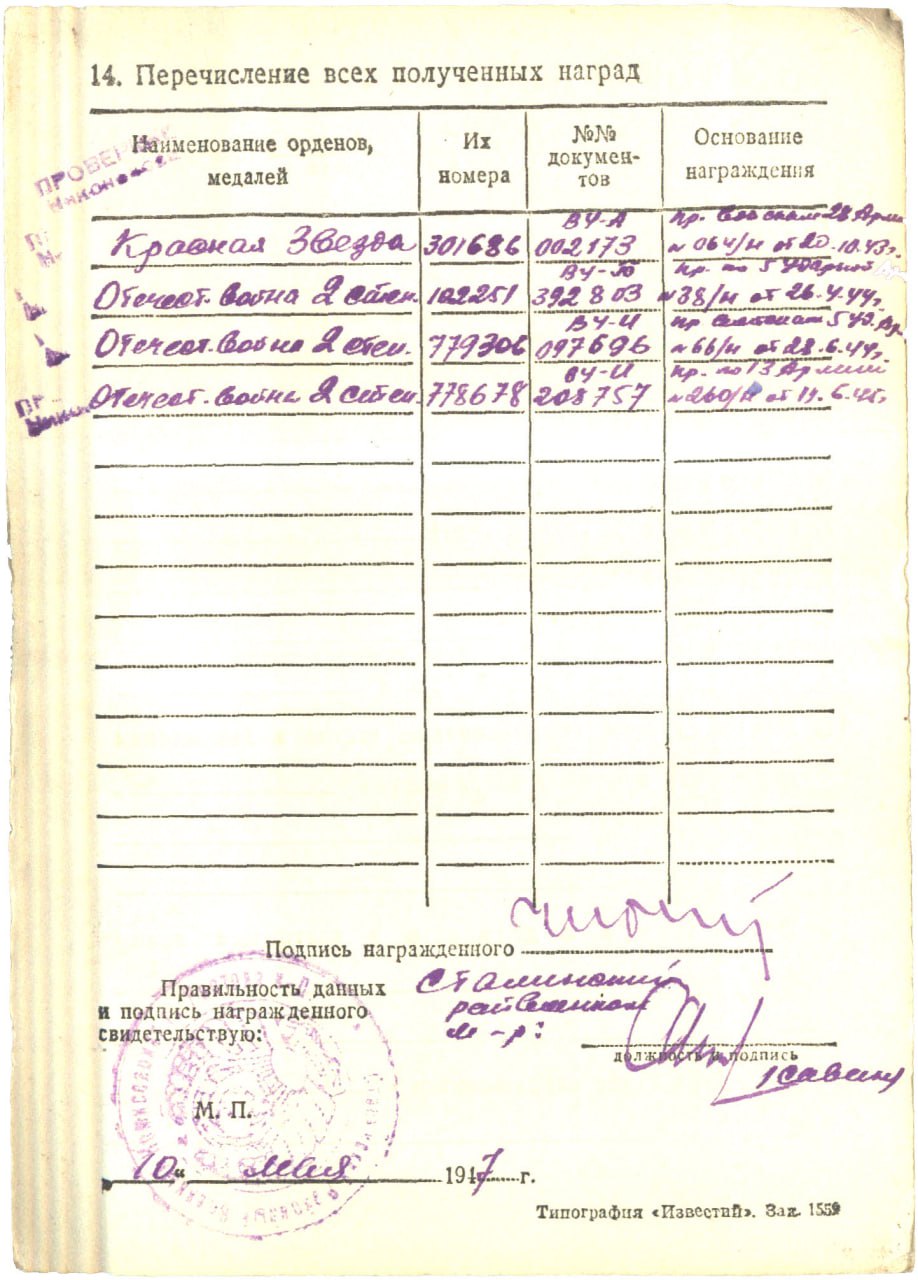 14. Перечисление всех полученных наград
Наименование орденов, медалей
Их номера
№№ документов
Основание награждения
ПРОВЕРЕНО
Красная Звезда 301686 ВЧ-А 002173 пр. войскам 28 Арми № 064/н от 20.10.43г.
Отечест. война 2 степ. 102251 392803 пр. по 5 Ударной № 38/н от 26.4.44г.
Отечест. война 2 степ. 779306 ВЧ-И 097696 пр. 5 уд. Ар. № 66/н от 28.6.44г.
Отечест. война 2 степ. 778678 ВЧ-И 208757 пр. по 13 Армии № 260/н от 6.45г.
Подпись награжденного
Правильность данных
и подпись награжденного
свидетельствую:
Сталинский
райвоенком
м-р:
должность и подпись
/Савин
М. П.
"10" мая 1947 г.
Типография «Известий». Зак. 1559